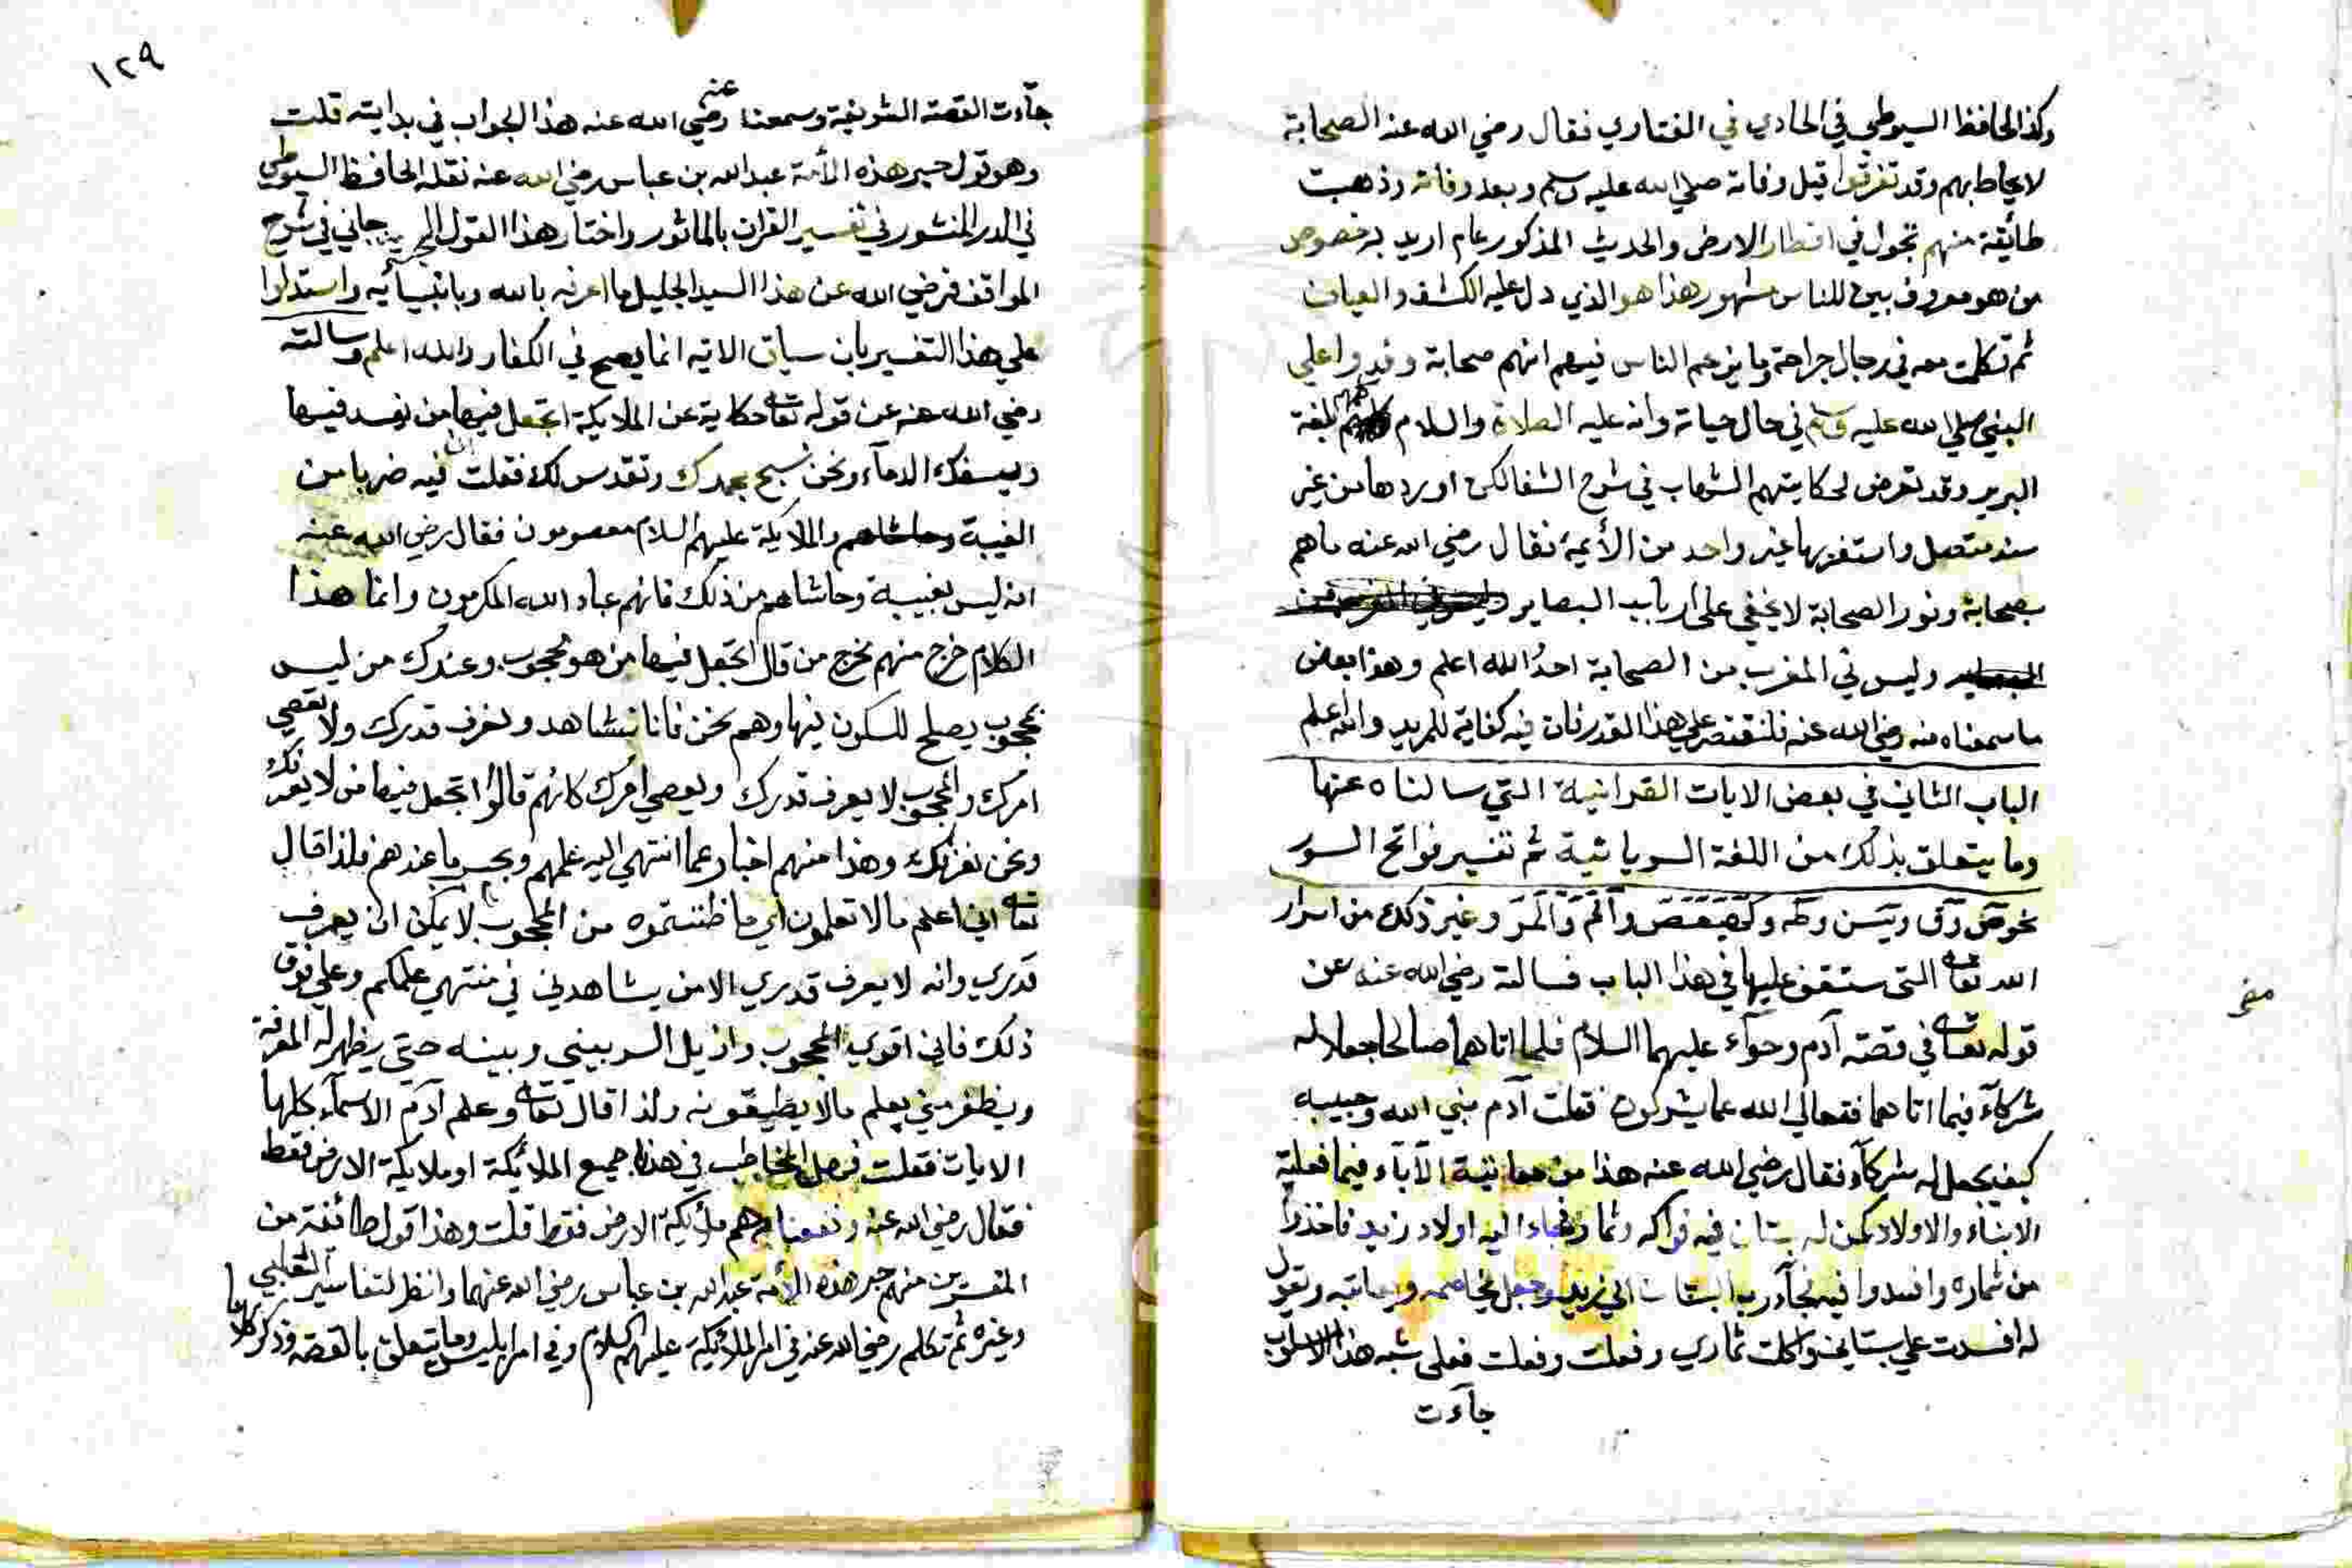 وكذا الحافظ السيوطي في الحاوي في الفتاوي فقال رضي الله عنه الصحابة
لا يحاط بهم وقد تفرقوا قبل وفاته صلي الله عليه وسلم وبعد وفاته وذهبت
طائفة منهم تجول في اقطار الارض والحديث المذكور عام اريد به خصوص
من هو معروف بين الناس مشهور هذا هو الذي دل عليه الكشف والعيان
ثم تكلمت معه في رجال جراحة وما يزعم الناس فيهم انهم صحابة وفدوا علي
النبي صلي الله عليه وسلم في حال حياته وانه عليه الصلاة والسلام كلمهم بلغة
البربر وقد تعرض لحكايتهم الشهاب في شرح الشفا لكن اوردها من غير
سند متصل واستغربها غير واحد من الأئمة فقال رضي الله عنه ما هم
بصحابة ونور الصحابة لا يخفي علي ارباب البصاير
وليس في المغرب من الصحابة احد الله اعلم وهذا بعض
ما سمعناه منه رضي الله عنه فلنقتصر علي هذا القدر فان فيه كفاية للمريد والله اعلم
الباب الثاني في بعض الايات القرانية التي سالناه عنها
وما يتعلق بذلك من اللغة السريانية ثم تفسير فواتح السور
نحو ص وق ويس وطه وكهيعص والم والمر وغير ذلك من اسرار
الله تعالى التي ستقف عليها في هذا الباب فسالته رضي الله عنه عن
قوله تعالى في قصة آدم وحوآء عليهما السلام فلما اتاهما صالحا جعلا له
شركآء فيما اتاهما فتعالي الله عما يشركون فقلت آدم نبي الله وحبيبه
كيف يجعل له شركآء فقال رضي الله عنه هذا من معاتبة الآبآء فيما فعلته
الابناء والاولاد كمن له بستان فيه فواكه وثمار فجاء اليه اولاد زيد فاخذوا
من ثماره وافسدوا فيه فجآء رب البستان الي زيد وجعل يخاصمه ويعاتبه ويقول
له افسدت علي بستاني واكلت ثماري وفعلت وفعلت فعلي شبه هذا الاسلوب
جآءت
١٢٩
جآءت القصة الشريفة وسمعنا عنه رضي الله عنه هذا الجواب في بدايته قلت
وهو قول حبر هذه الأمة عبد الله بن عباس رضي الله عنه نقله الحافظ السيوطي
في الدر المنثور في تفسير القران بالماثور واختار هذا القول الجرجاني في شرح
المواقف فرضي الله عن هذا السيد الجليل ما اعرفه بالله وبانبيائه واستدلوا
علي هذا التفسير بان سياق الاية انما يصح في الكفار والله اعلم وسالته
رضي الله عنه عن قوله تعالى حكاية عن الملايكة اتجعل فيها من يفسد فيها
ويسفك الدمآء ونحن نسبح بحمدك ونقدس لك فقلت فيه ضربا من
الغيبة والملايكة عليهم السلام معصومون فقال رضي الله عنه
انه ليس بغيبة وحاشاهم من ذلك فانهم عباد الله المكرمون وانما هذا
الكلام خرج منهم مخرج من قال اتجعل فيها من هو محجوب وعندك من ليس
بمحجوب يصلح للسكون فيها وهم نحن فانا نشاهد ونعرف قدرك ولا نعصي
امرك والمحجوب لا يعرف قدرك ويعصي امرك كانهم قالوا اتجعل فيها من لا يعرفك
ونحن نعرفك وهذا منهم اخبار عما انتهي اليه علمهم وبحسب ما عندهم فلذا قال
تعالى اني اعلم ما لا تعلمون اي ما ظننتموه من المحجوب لا يمكن ان يعرف
قدري وانه لا يعرف قدري الا من يشاهدني في منتهي علمكم وعلمي فوق
ذلك فاني اقوي المحجوب وازيل الستر بيني وبينه حتي يظهر له المعرفة
ويظفر مني بعلم ما لا يطيقونه ولذا قال تعالى وعلم آدم الاسمآء كلها
الايات فقلت فهل المخاطب في هذا جميع الملائكة او ملايكة الارض فقط
فقال رضي الله عنه ونفعنا به هم ملائكة الارض فقط قلت وهذا قول طائفة من
المفسرين منهم حبر هذه الأمة عبد الله بن عباس رضي الله عنهما وانظر لتفاسير الثعلبي
وغيره ثم تكلم رضي الله عنه في امر الملائكة عليهم السلام وفي امر ابليس وما يتعلق بالقصة وذكر